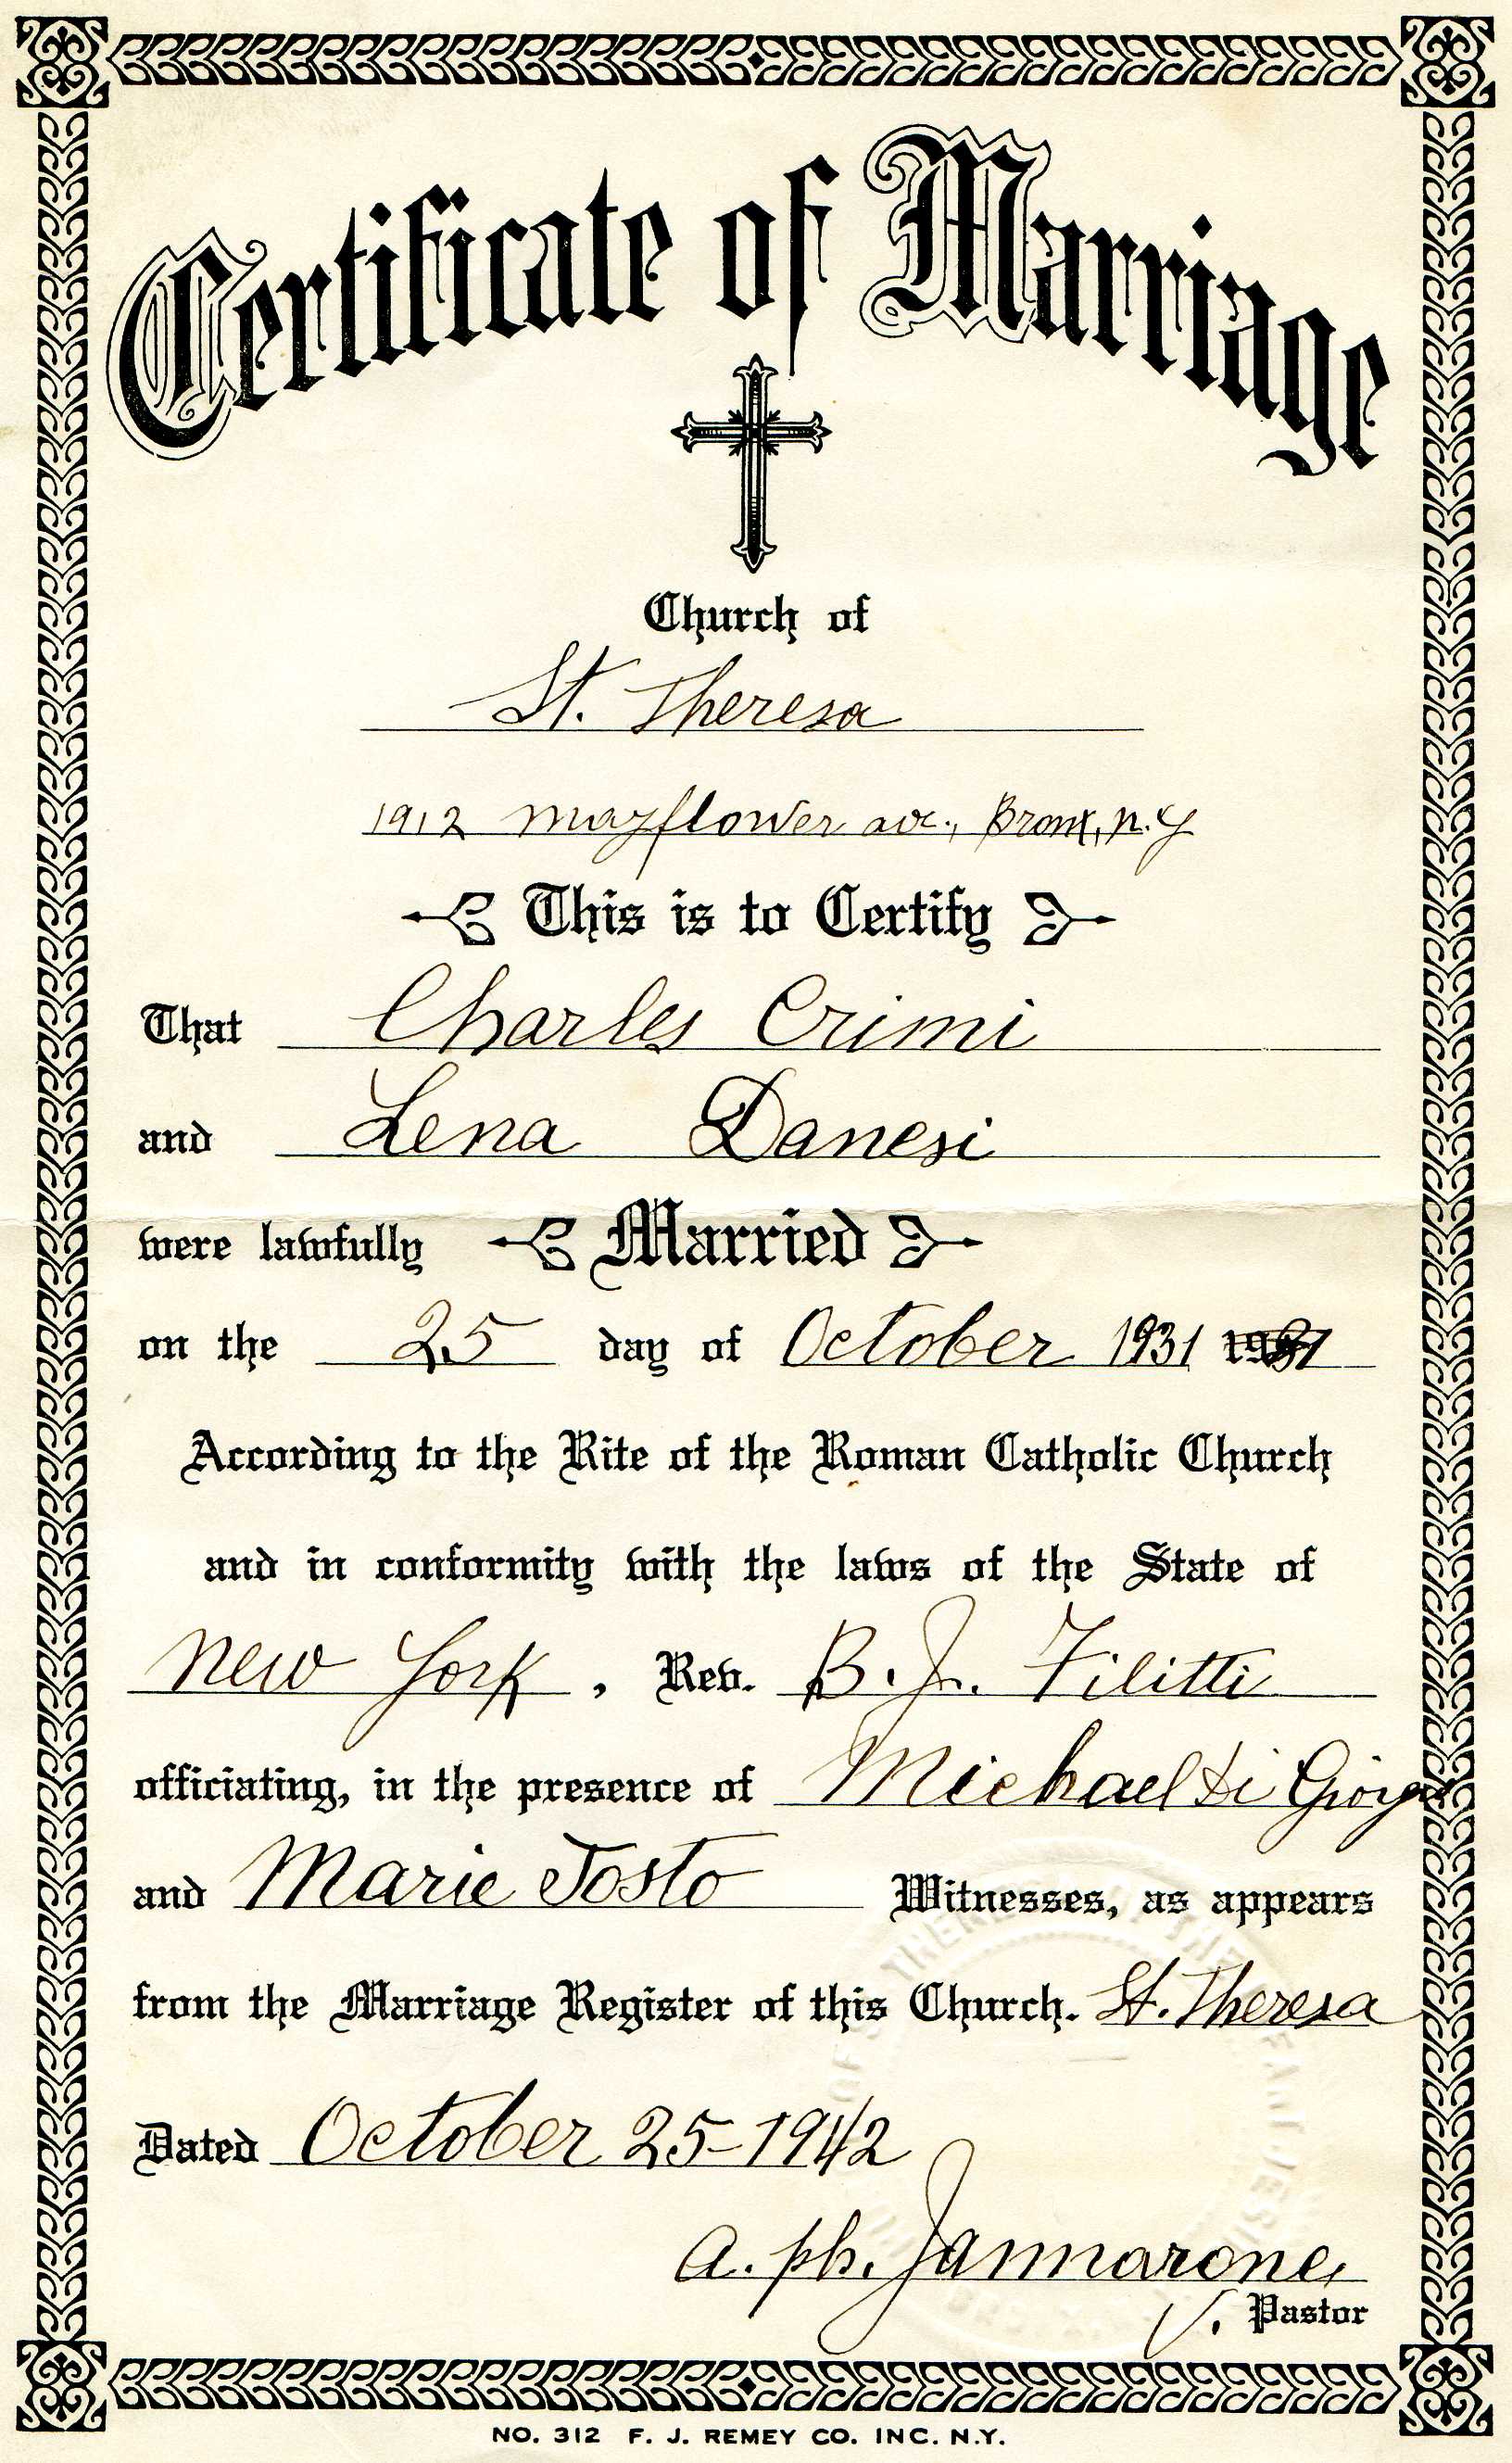 Certificate of Marriage
Church of
St. Theresa
1912 Mayflower ave., Bronx, N.Y
This is to Certify
That Charles Crimi
and Lena Danesi
were lawfully Married
on the 25 day of October 1931
According to the Rite of the Roman Catholic Church
and in conformity with the laws of the State of
New York, Rev. B. J. Filitti
officiating, in the presence of Michael Di Giorgio
and Marie Tosto Witnesses, as appears
from the Marriage Register of this Church. St. Theresa
Dated October 25-1942
A. Ph. Jannarone,
V. Pastor
NO. 312 F. J. REMEY CO. INC. N.Y.